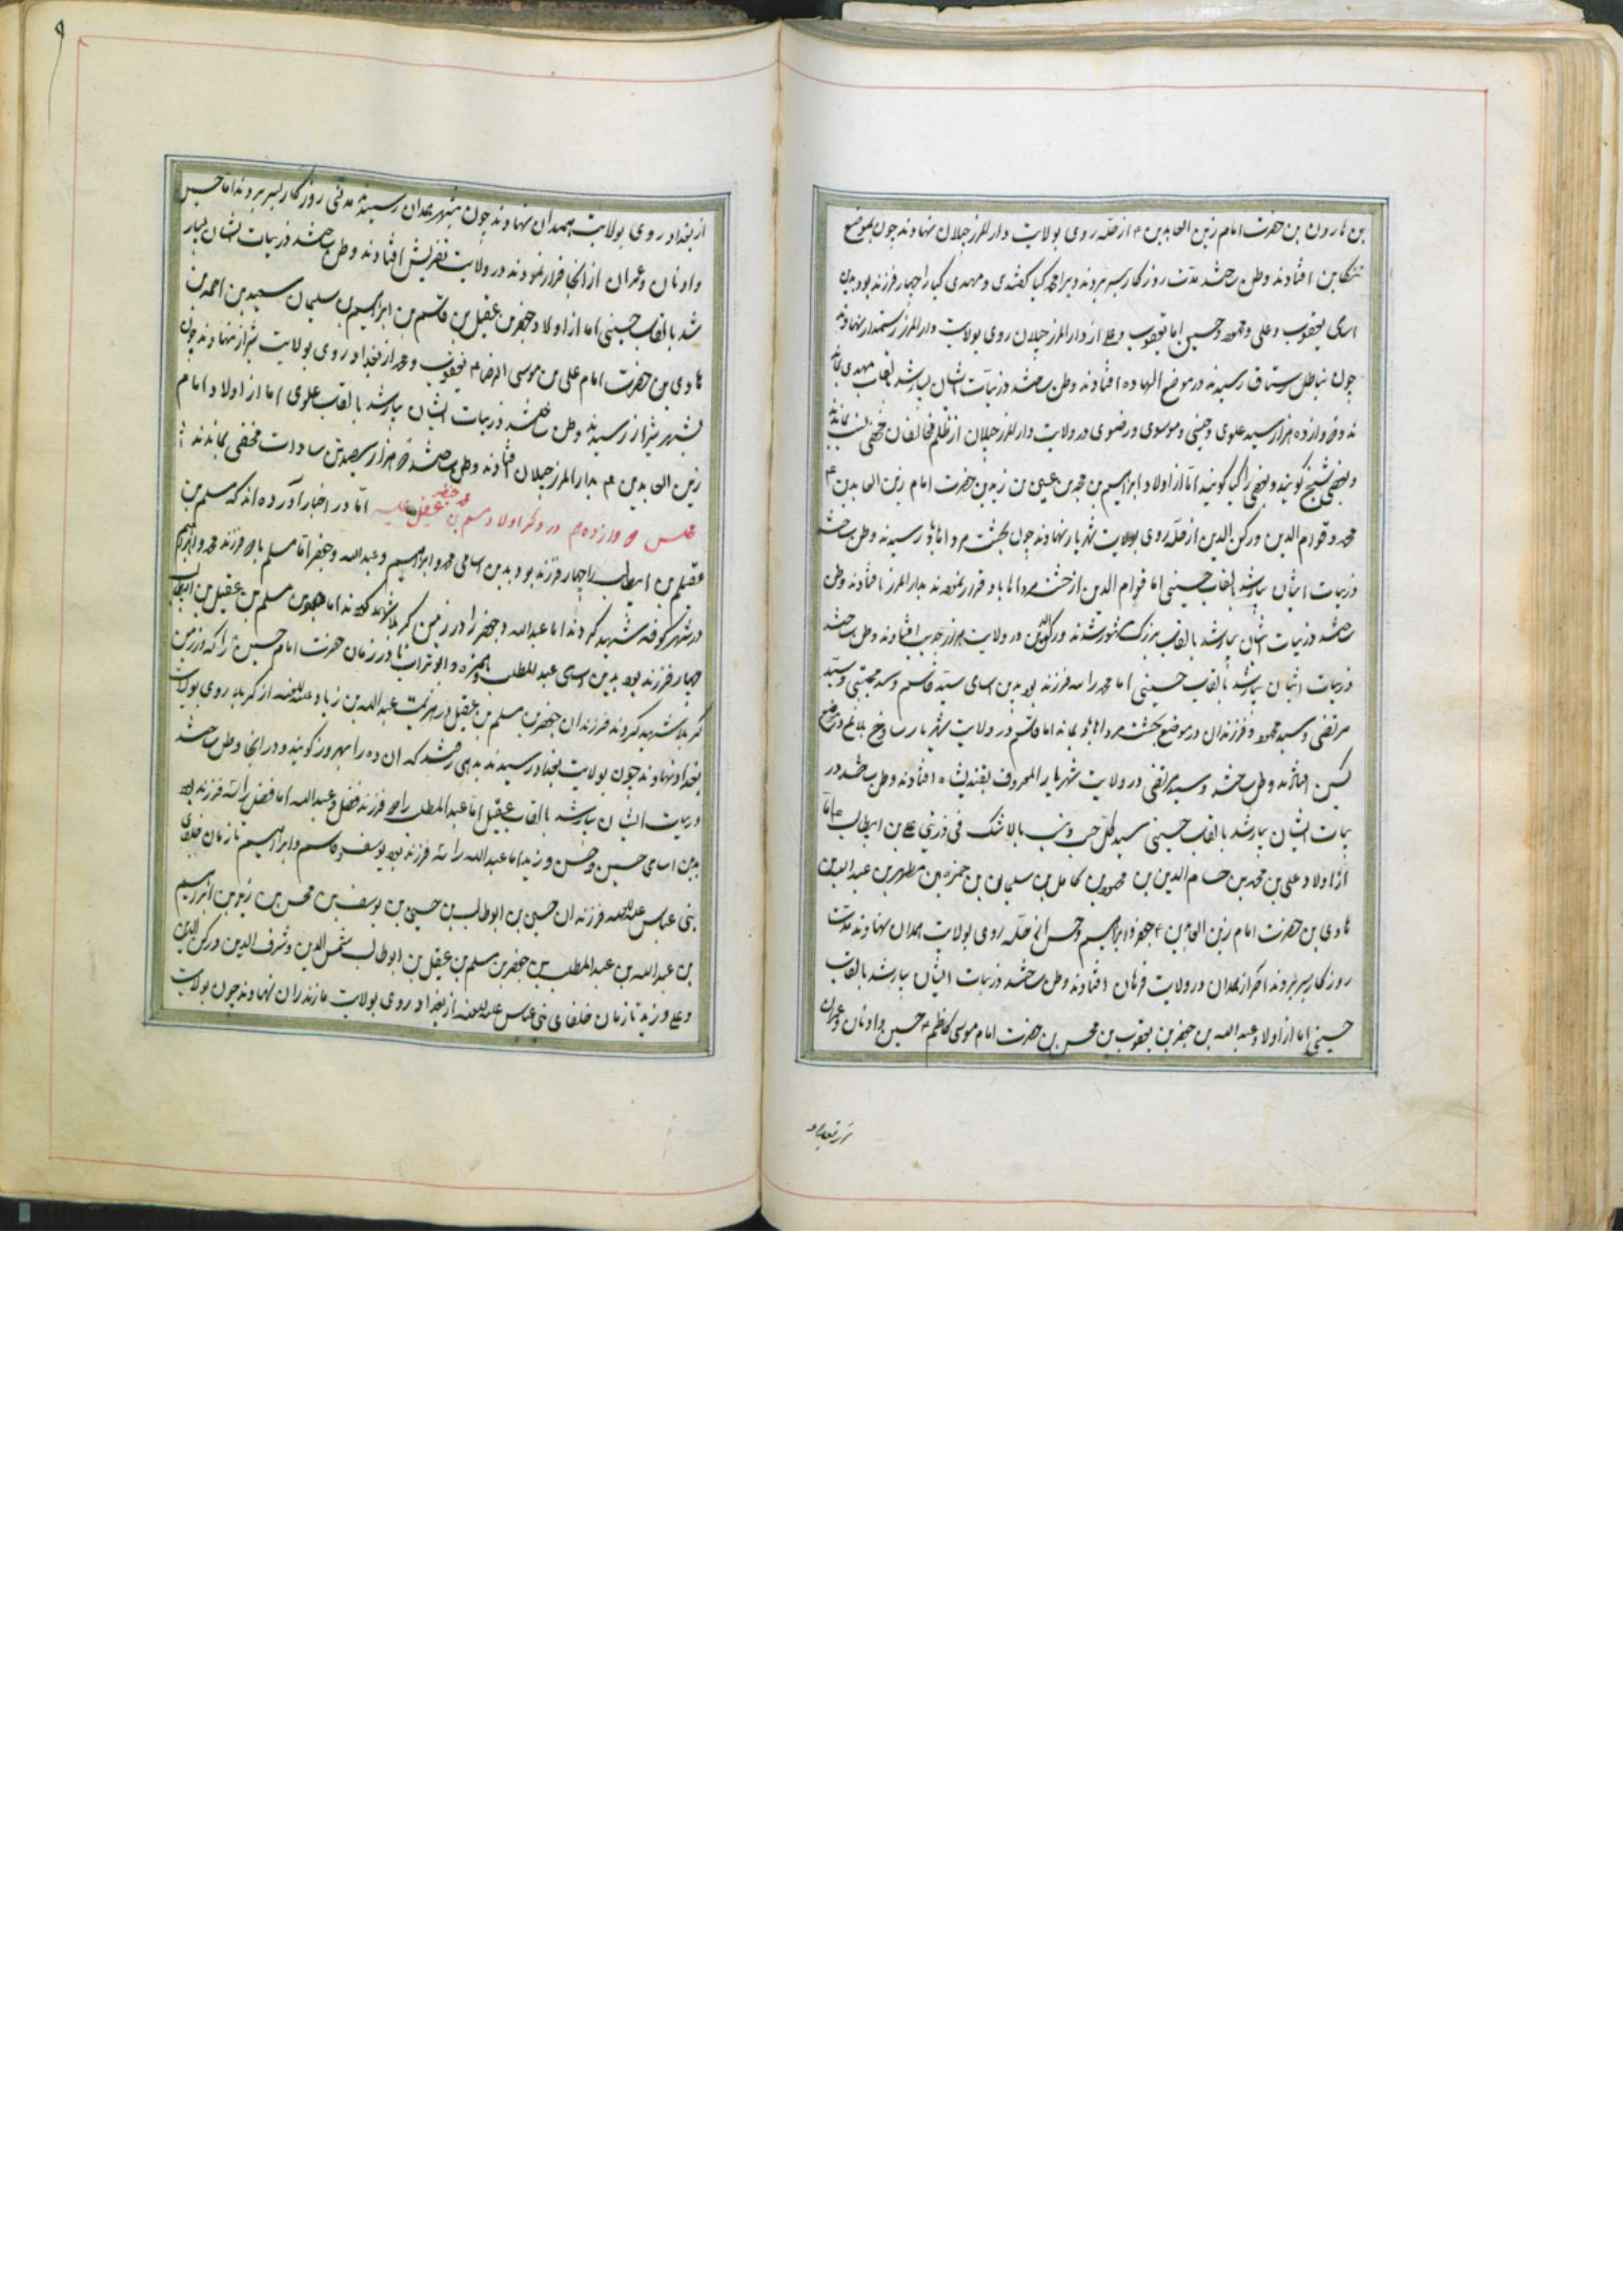 بن هارون بن حضرت امام زین العابدین ۴ از حله روی بولایت دار المرز جیلان نهادند چون بموضع
تنکابن افتادند وطن ساختند مدت روزکار بسر بردند و میر احمد کیا کفتندی و مهدی کیا را چهار فرزند بود بدین
اسامی یعقوب و علی و محمود و حسین اما یعقوب و علی از دار المرز جیلان روی بولایت دار المرز رستمدار نهادند
چون بناطل رستاق رسیدند در موضع الهاده افتادند وطن ساختند ذریات ایشان بسیار شد بالقاب مهدی
دوازده هزار سید علوی و حسنی و موسوی و رضوی در ولایت دار المرز جیلان از ظلم مخالفان مخفی
و بعضی شیخ کویند و بعضی را کیا کویند اما از اولاد ابراهیم بن محمد بن عیسی بن زید بن حضرت امام زین العابدین ۴
محمد و قوام الدین و رکن الدین از حله روی بولایت شهریار نهادند چون رسیدند وطن ساختند
ذریات ایشان بسیار شد بالقاب حسینی اما قوام الدین از فرار نموده بدار المرز افتادند وطن
ساختند ذریات ایشان بسیار شد بالقاب بزرک مشهور شدند و رکن الدین در ولایت افتادند وطن ساختند
ذریات ایشان بسیار شد بالقاب حسینی اما محمد را سه فرزند بود بدین اسامی سید قاسم و سید مجتبی و سید
مرتضی و سید محمود و فرزندان در موضع بماند اما قاسم در ولایت شهریار
افتادند وطن ساختند و سید مرتضی در ولایت شهریار المعروف افتادند وطن ساختند در
یات ایشان بسیار شد بالقاب حسینی سید کل حسب و نسب بلا شک فی ذریتی علی بن ابیطالب ۴ اما
از اولاد علی بن محمد بن حسام الدین بن محمود بن کامل بن سلیمان بن حمزه بن مطهر بن عبد الله بن
هادی بن حضرت امام زین العابدین ۴ جعفر و ابراهیم و حسن از حله روی بولایت همدان نهادند مدت
روزکار بسر بردند آخر از همدان در ولایت فرهان افتادند وطن ساختند ذریات ایشان بسیار شد بالقاب
حسینی اما از اولاد عبد الله بن جعفر بن یعقوب بن محسن بن حضرت امام موسی کاظم ۴ حسین و ادنان و عمران
۹
از بغداد روی بولایت همدان نهادند چون بشهر همدان رسیدند مدتی روزکار بسر بردند اما حسین
و ادنان و عمران از انجا فرار نمودند در ولایت تفریش افتادند وطن ساختند ذریات ایشان بسیار
شد بالقاب حسینی اما از اولاد جعفر بن عقیل بن قاسم بن ابراهیم بن سلیمان سعید بن احمد بن
هادی بن حضرت امام علی بن موسی الرضا ۴ یعقوب و محمد از بغداد روی بولایت شیراز نهادند چون
بشهر شیراز رسیدند وطن ساختند ذریات ایشان بسیار شد بالقاب علوی اما از اولاد امام
زین العابدین ۴ بدار المرز جیلان افتادند وطن ساختند هزار سیصد تن سادات مخفی بماندند
مجلس دوازدهم در ذکر اولاد مسلم بن عقیل علیه اما در اخبار آورده اند که مسلم بن
عقیل بن ابیطالب را چهار فرزند بود بدین اسامی محمد و ابراهیم و عبدالله و جعفر اما مسلم با دو فرزند محمد و ابراهیم
در شهر کوفه شهید کردند اما عبدالله و جعفر را در زمین کربلا شهید کردند اما جعفر بن مسلم بن عقیل بن ابیطالب
چهار فرزند بود بدین اسامی عبد المطلب و حمزه و ابو تراب در زمان حضرت امام حسین را که در زمین
کربلا شهید کردند فرزندان جعفر بن مسلم بن عقیل در هزیمت عبدالله بن زیاد علیه اللعنه از کربلا روی بولایت
بغداد نهادند چون بولایت بغداد رسیدند بدهی رفتند که ان ده را بهروز کویند و در انجا وطن ساختند
ذریات ایشان بسیار شد بالقاب عقیل اما عبد المطلب را دو فرزند فضل و عبدالله اما فضل را سه فرزند بود
بدین اسامی حسین و حسن و زید اما عبدالله را سه فرزند بود یوسف و قاسم و ابراهیم تا زمان خلفای
بنی عباس علیه اللعنه فرزندان حسین بن ابوطالب بن حسین بن یوسف بن محسن بن زید بن ابراهیم
بن عبدالله بن عبد المطلب بن جعفر بن مسلم بن عقیل بن ابوطالب شمس الدین و شرف الدین و رکن الدین
و علی و زید تا زمان خلفای بنی عباس علیه اللعنه از بغداد روی بولایت مازندران نهادند چون بولایت